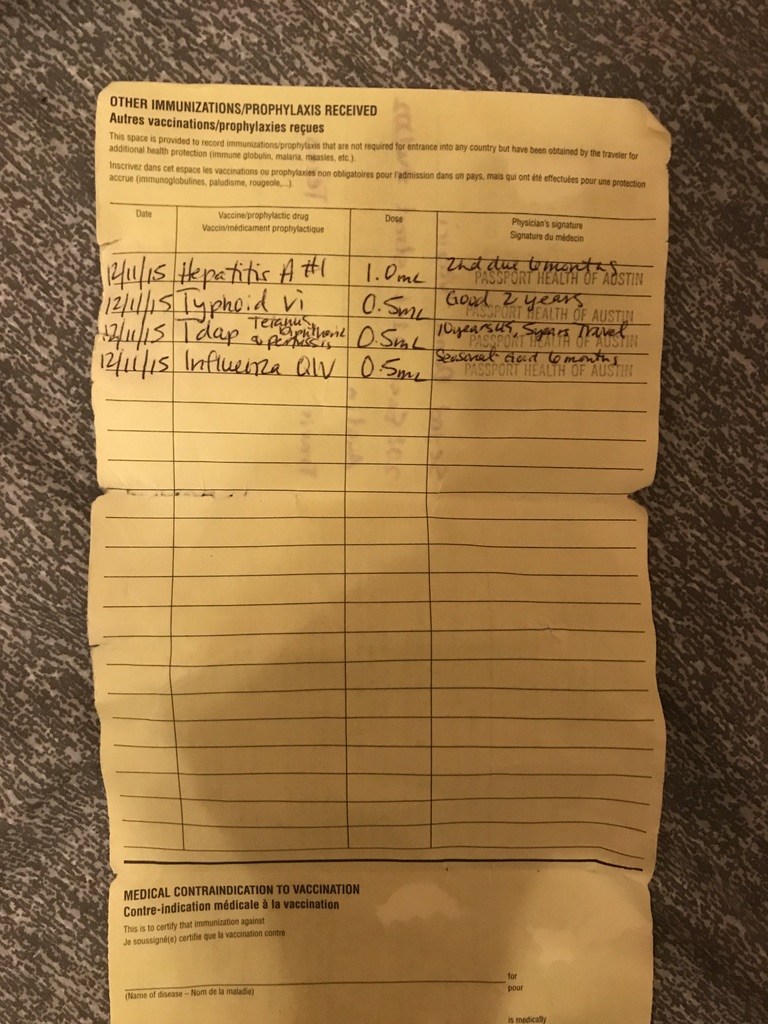 OTHER IMMUNIZATIONS/PROPHYLAXIS RECEIVED
Autres vaccinations/prophylaxies reçues
This space is provided to record immunizations/prophylaxis that are not required for entrance into any country but have been obtained by the traveler for
additional health protection (immune globulin, malaria, measles, etc.).
Inscrivez dans cet espace les vaccinations ou prophylaxies non obligatoires pour l'admission dans un pays, mais qui ont été effectuées pour une protection
accrue (immunoglobulines, paludisme, rougeole,...).
Date Vaccine/prophylactic drug Dose Physician's signature
Vaccin/médicament prophylactique Signature du médecin
12/11/15 Hepatitis A #1 1.0mL 2nd due 6 months
PASSPORT HEALTH OF AUSTIN
12/11/15 Typhoid Vi 0.5mL Good 2 years
PASSPORT HEALTH OF AUSTIN
12/11/15 Tdap Tetanus, 0.5mL 10 years US, 5 years Travel
pertussis PASSPORT HEALTH OF AUSTIN
12/11/15 Influenza QIV 0.5mL Seasonal Good 6 months
PASSPORT HEALTH OF AUSTIN
MEDICAL CONTRAINDICATION TO VACCINATION
Contre-indication médicale à la vaccination
This is to certify that immunization against
Je soussigné(e) certifie que la vaccination contre
for
(Name of disease – Nom de la maladie) pour
is medically